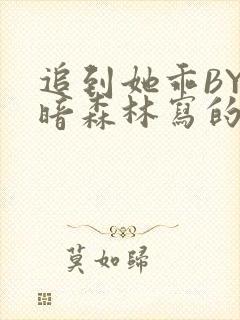 追到她乖BY
暗森林寫的
莫如歸